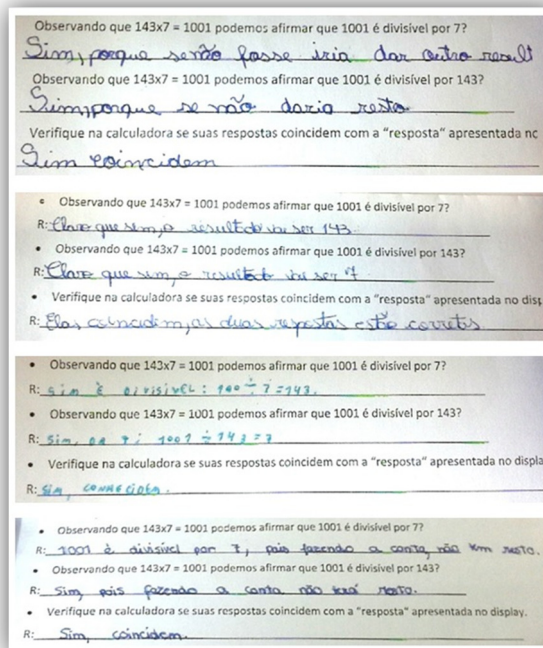 Observando que 143x7 = 1001 podemos afirmar que 1001 é divisível por 7?
Sim, porque senão fosse iria dar outro result
Observando que 143x7 = 1001 podemos afirmar que 1001 é divisível por 143?
Sim, porque se não daria resto
Verifique na calculadora se suas respostas coincidem com a "resposta" apresentada no
Sim coincidem
Observando que 143x7 = 1001 podemos afirmar que 1001 é divisível por 7?
R: Claro que sim, o resultado vai ser 143
• Observando que 143x7 = 1001 podemos afirmar que 1001 é divisível por 143?
R: Claro que sim, o resultado vai ser 7
• Verifique na calculadora se suas respostas coincidem com a "resposta" apresentada no disp
R: Elas coincidem, as duas respostas estão corretas
• Observando que 143x7 = 1001 podemos afirmar que 1001 é divisível por 7?
R: Sim é divisivel: 100 ÷ 7 = 143.
• Observando que 143x7 = 1001 podemos afirmar que 1001 é divisível por 143?
R: Sim, 1001 ÷ 143 = 7
• Verifique na calculadora se suas respostas coincidem com a "resposta" apresentada no displa
R: Sim,
• Observando que 143x7 = 1001 podemos afirmar que 1001 é divisível por 7?
R: 1001 é divisível por 7, pois fazendo a conta, não tem resto.
• Observando que 143x7 = 1001 podemos afirmar que 1001 é divisível por 143?
R: Sim, pois fazendo a conta não terá resto.
• Verifique na calculadora se suas respostas coincidem com a "resposta" apresentada no display.
R: Sim, coincidem.